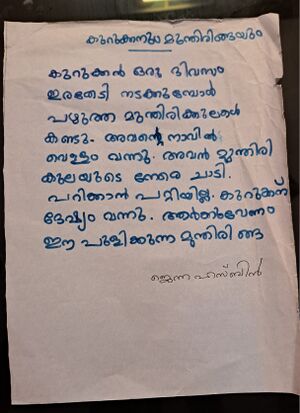 കുറുക്കനും മുന്തിരിങ്ങയും
കുറുക്കൻ ഒരു ദിവസം
ഇരതേടി നടക്കുമ്പോൾ
പഴുത്ത മുന്തിരിക്കുലകൾ
കണ്ടു. അവന്റെ നാവിൽ
വെള്ളം വന്നു. അവൻ മുന്തിരി
കുലയുടെ നേരെ ചാടി.
പറിക്കാൻ പറ്റിയില്ല. കുറുക്കന്
ദേഷ്യം വന്നു. ആർക്കുവേണം
ഈ പുളിക്കുന്ന മുന്തിരി ങ്ങ
ജെന്ന ഹസ്ബിൻ